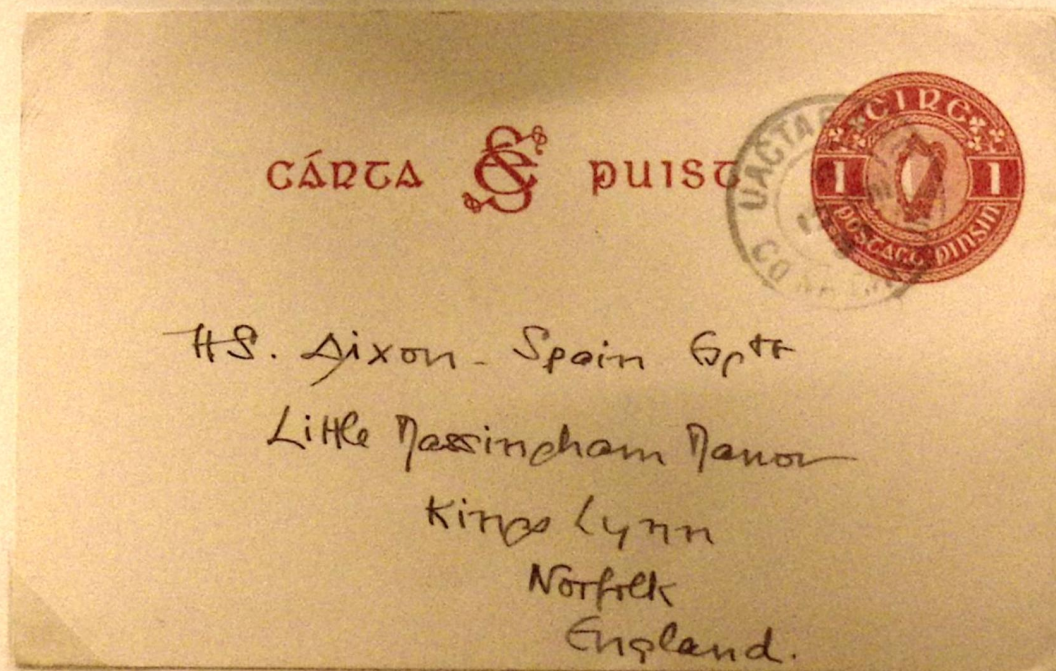 CÁRTA SÉ PUIST
EIRE
1 1
POSTAGE PINSIN
UACTAR
CO
HS. Dixon-Spain Esq
Little Massingham Manor
Kings Lynn
Norfolk
England.